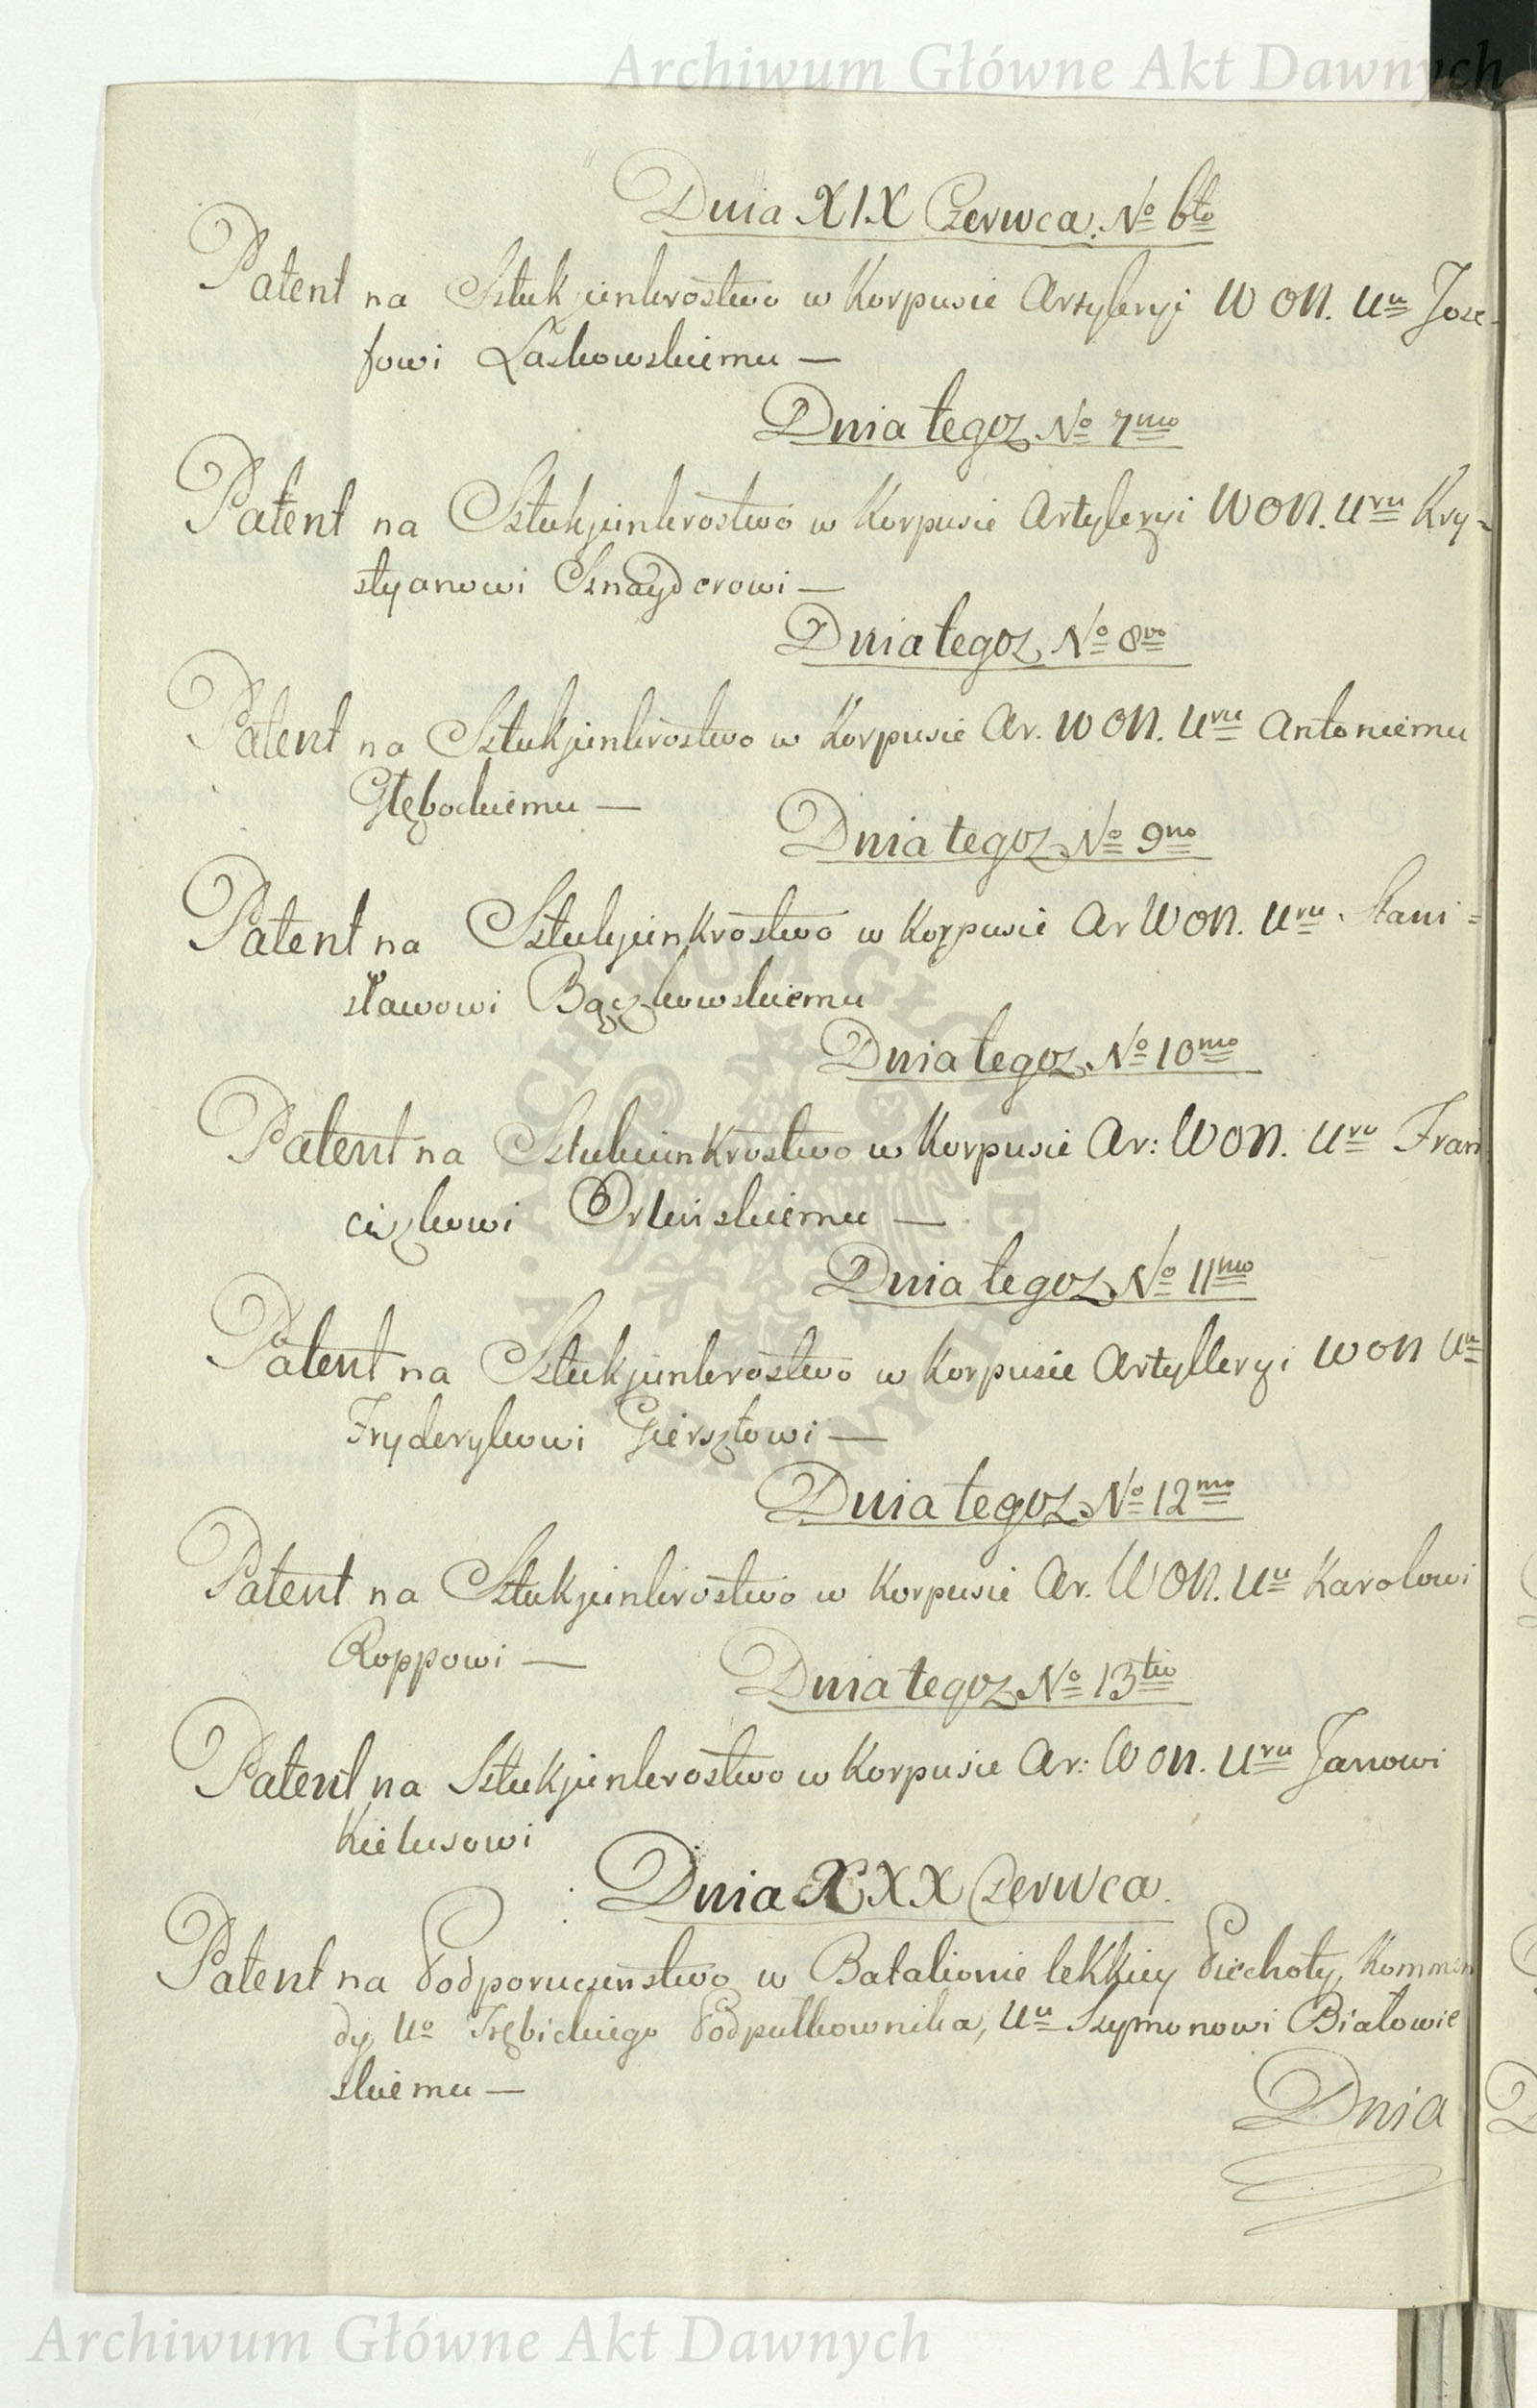 Archiwum Główne Akt Dawnych
Dnia XIX Czerwca. No 6to
Patent na Sztukjunkrostwo w Korpusie Artyleryi WON. Uu Joze-
fowi Laskowskiemu —
Dnia tegoz No 7mo
Patent na Sztukjunkrostwo w Korpusie Artyleryi WON. Uru Kry-
styanowi Sznayderowi —
Dnia tegoz No 8vo
Patent na Sztukjunkrostwo w Korpusie Ar. WON. Uru Antoniemu
Głębockiemu —
Dnia tegoz No 9no
Patent na Sztukjunkrostwo w Korpusie Ar WON. Uru Stani=
sławowi Bączkowskiemu
Dnia tegoz No 10mo
Patent na Sztukiunkrostwo w Korpusie Ar: WON. Uru Fran
ciszkowi Orłuiskiemu —
Dnia tegoz No 11mo
Patent na Sztukjunkrostwo w Korpusie Artylleryi WON Uu
Fryderykowi Giersztowi —
Dnia tegoz No 12mo
Patent na Sztukjunkrostwo w Korpusie Ar. WON. Uu Karolowi
Roppowi —
Dnia tegoz No 13tio
Patent na Sztukjunkrostwo w Korpusie Ar: WON. Uru Janowi
Kielusowi
Dnia XXX Czerwca.
Patent na Podporuczenstwo w Batalionie lekkiey Piechoty, Kommen
dy Uo Trębickiego Podpułkownika, Uu Szymonowi Białowie
skiemu —
Dnia
ARCHIWUM GŁÓWNE AKT DAWNYCH
Archiwum Główne Akt Dawnych